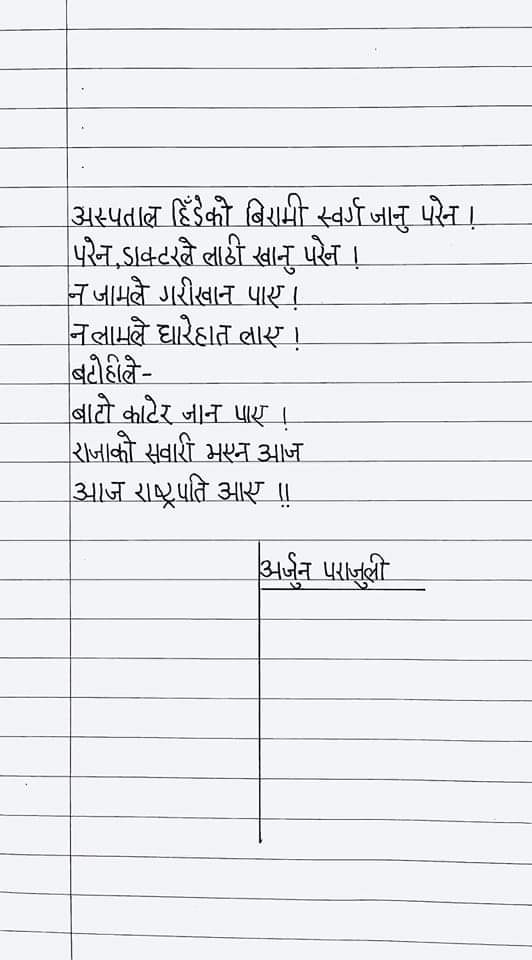 अस्पताल हिँडेको बिरामी स्वर्ग जानु परेन !
परेन, डाक्टरले लाठी खानु परेन !
न जामले गरीखान पाए !
न लामले घारेहात लाए !
बटोहीले-
बाटो काटेर जान पाए !
राजाको सवारी भएन आज
आज राष्ट्रपति आए !!
अर्जुन पराजुली